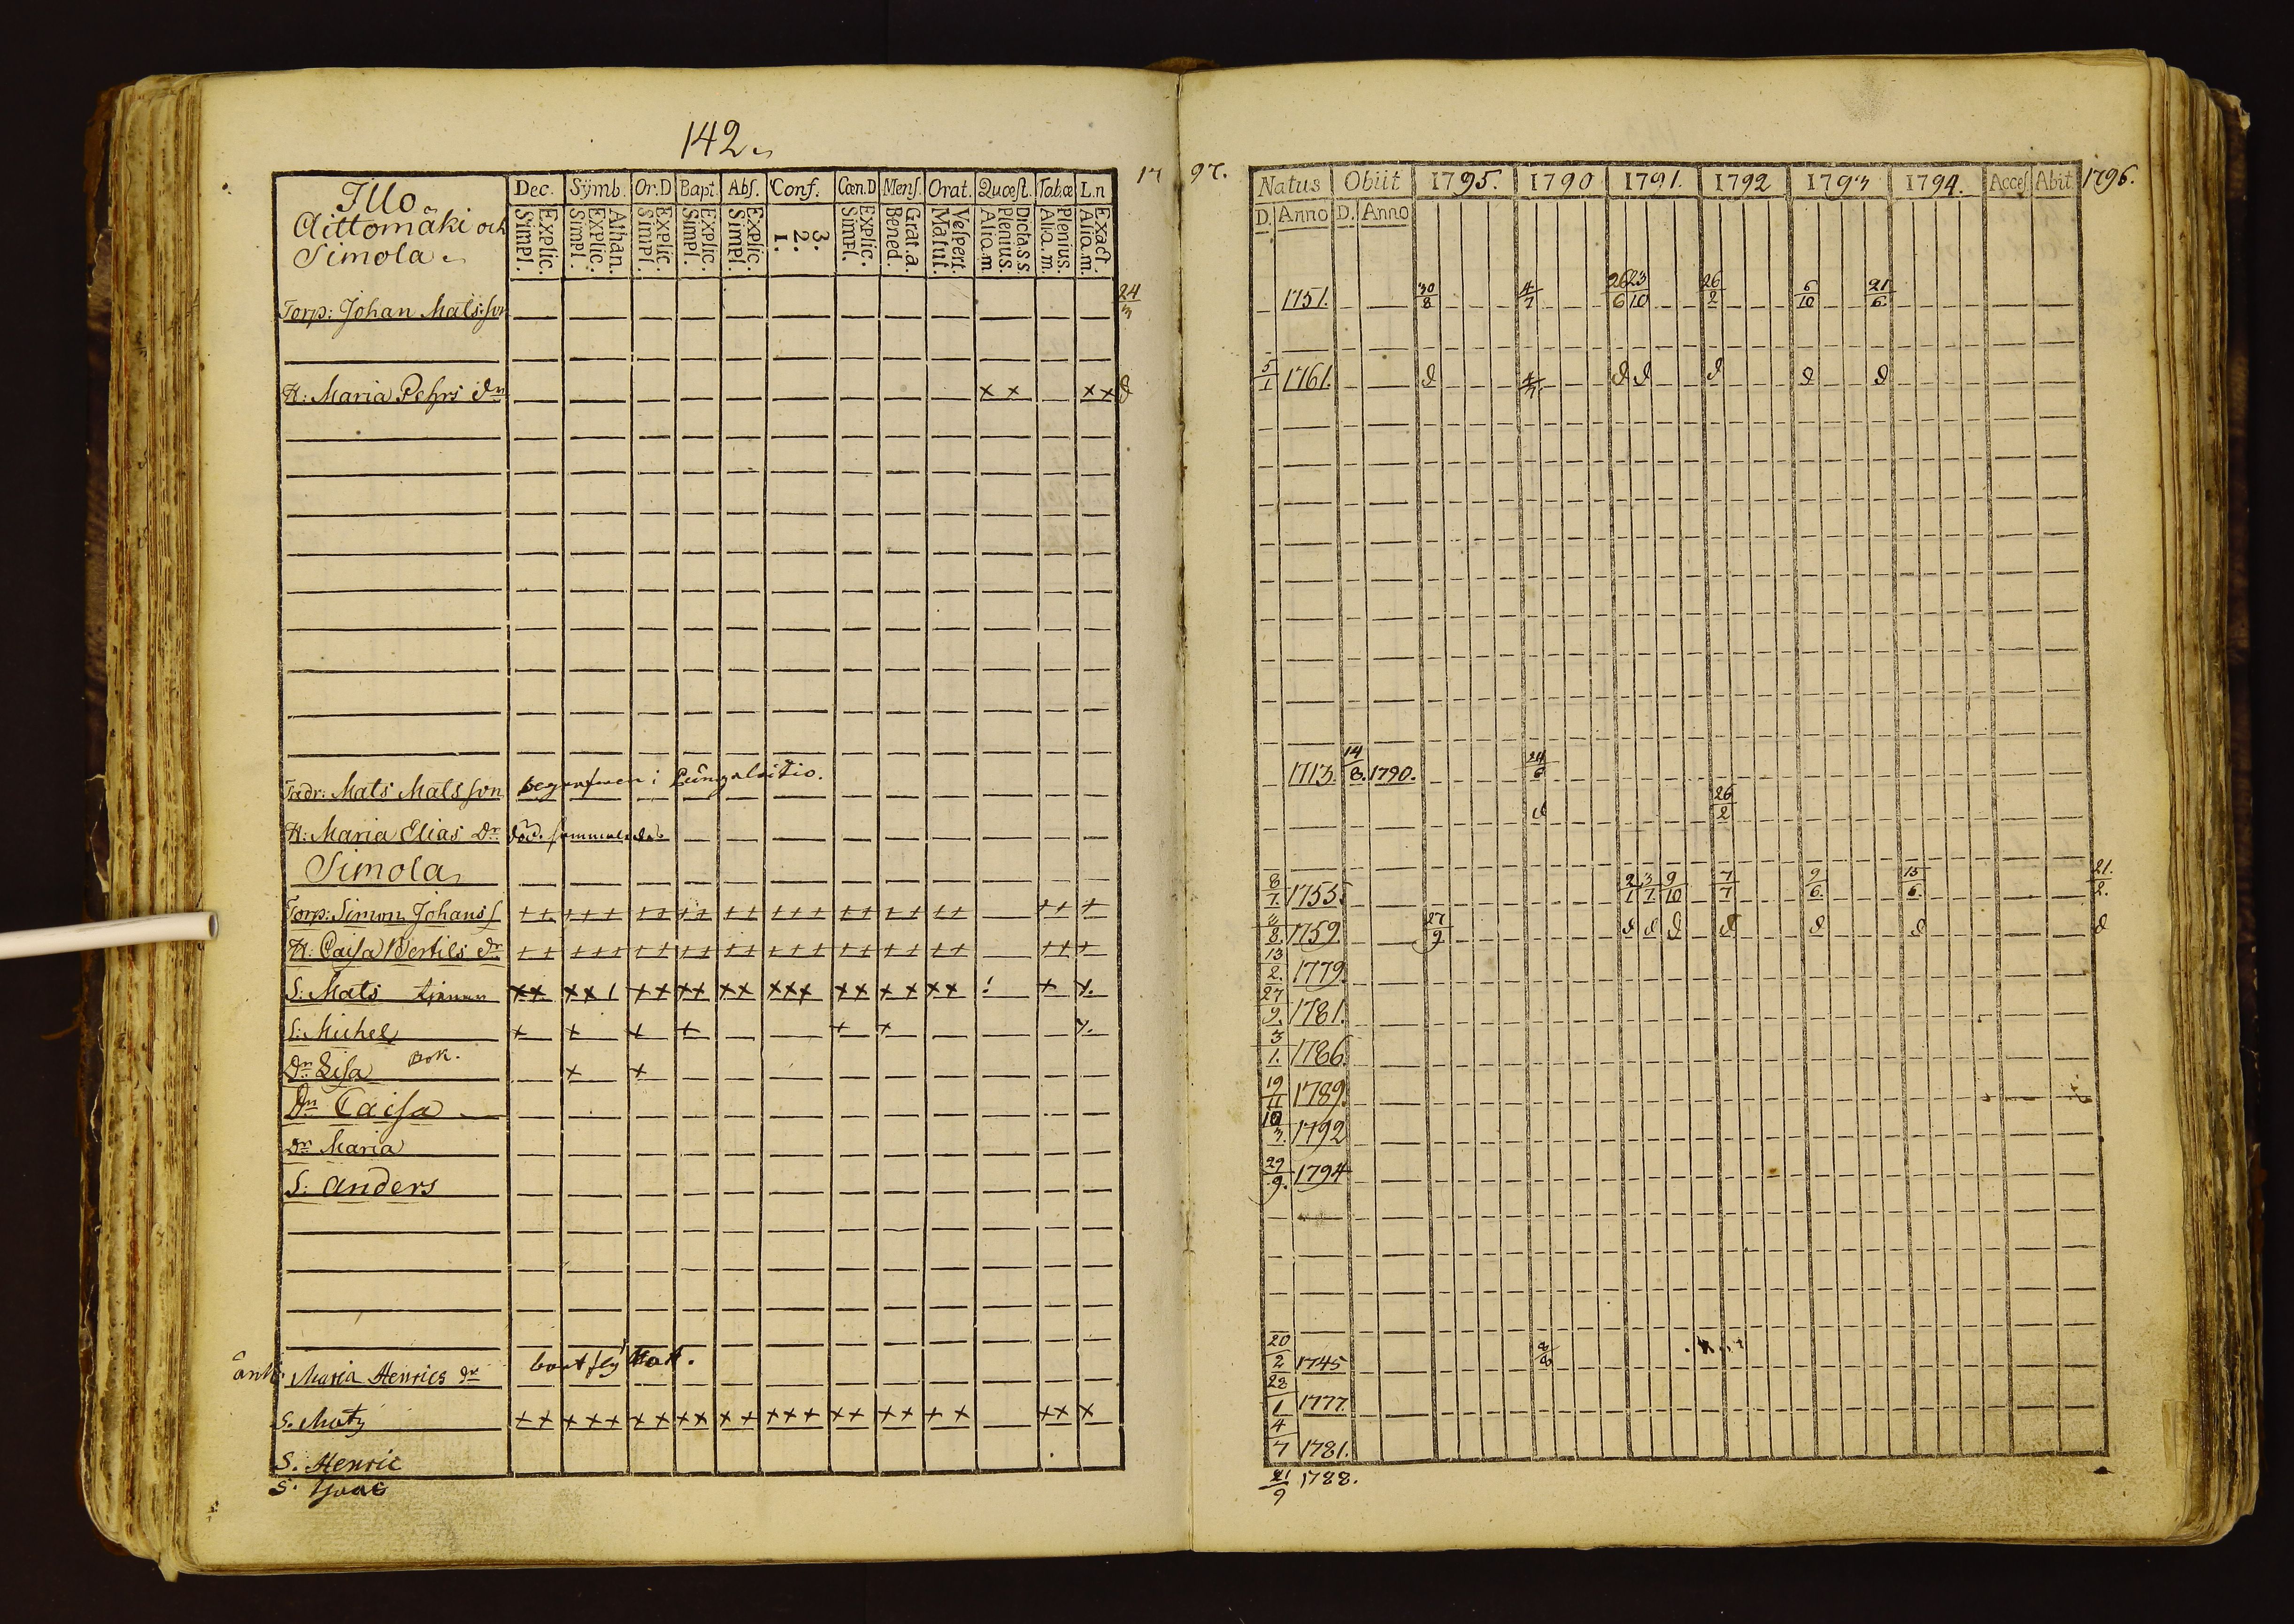 142.
Illo
Aittomäki och
Simola
Dec. Symb. Or.D Bapt. Abs. Conf. Cœn.D Mens. Orat. Quœst. Tab.œ L.n 17
Explic. Simpl. Athan. Explic. Simpl. Explic. Simpl. Explic. Simpl. Explic. Simpl. 3. 2. 1. Explic. Simpl. Grat.a. Bened. Vespert. Matut. Dicta.s.s. Plenius. Aliq.m. Plenius. Aliq.m. Exact. Aliq.m.
Torp: Johan Matsson 24/3
H: Maria Pehrs dr x x x x d
Mats Matsson begrafven i
H: Maria Elias Dr död.
Simola
Torp: Simon Johans s ++ +++ ++ ++ ++ +++ ++ ++ ++ ++ +
H: Caisa Bertils dr ++ +++ ++ ++ ++ +++ ++ ++ ++ ++ +
S: Mats xx xx1 xx xx xx xxx xx xx xx ! x x.
S: Michel + + + + + + x.
Dr Lisa Bok. x x
Dr Caisa
Dr Maria
S: Anders
Maria Henrics dr
S. Matz ++ +++ ++ xx x+ xxx xx ++ + x xx x
S. Henric
S.
97.
Natus Obiit 1795. 1790 1791. 1792 1793 1794. Acces. Abit. 1796.
D. Anno D. Anno
1751. 30/8 4/7 26/6 23/10 26/2 6/10 21/6
5/1 1761. d 4/7 d d d d d
1713. 14/8. 1790. 24/6
d 26/2
8/7. 1755. 2/1 3/7 9/10 7/7 9/6. 15/6. 21./2.
8. 1759. 27/9 d d d d d d d
13/2. 1779.
27/9. 1781.
3/1. 1786.
19/11 1789.
10/3. 1792
29/9. 1794
20/2 1745
28/1 1777
4/7 1781.
21/9 1788.